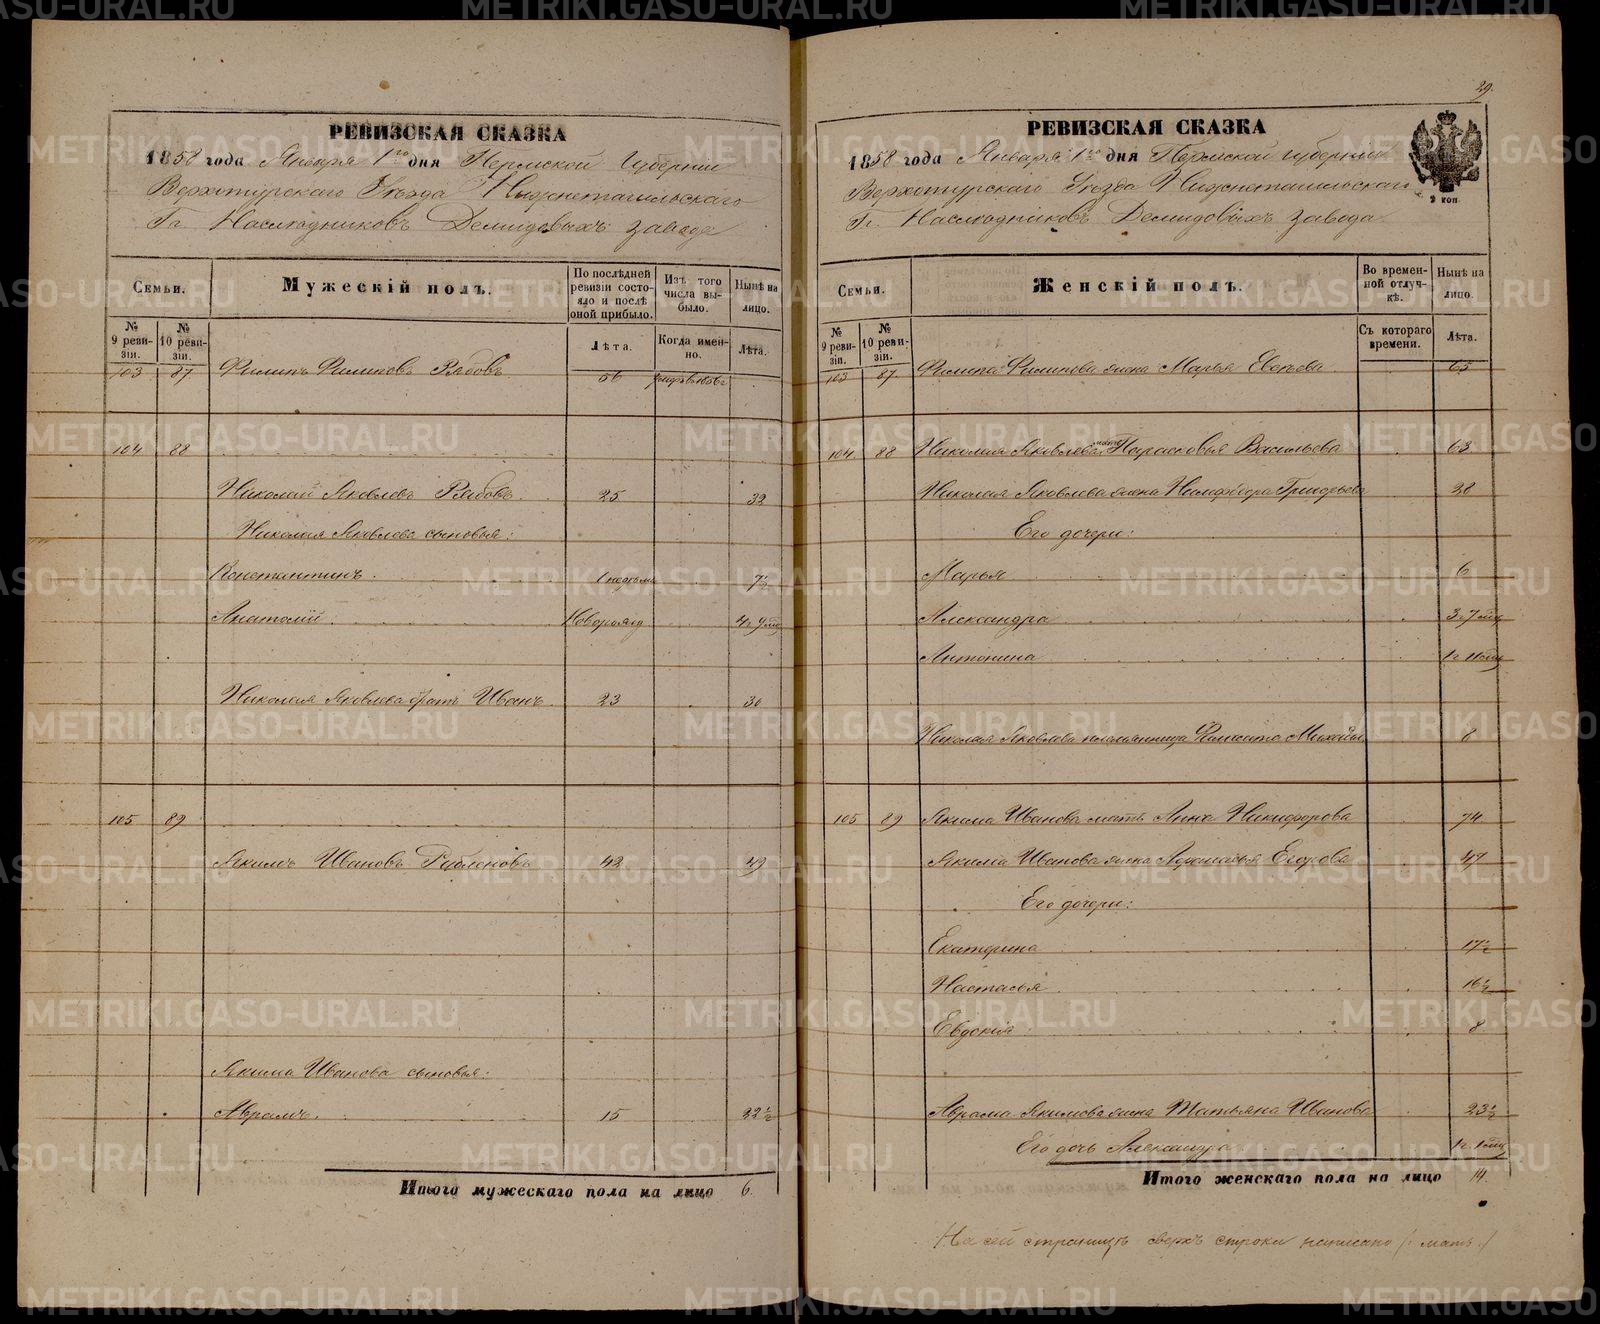 РЕВИЗСКАЯ СКАЗКА
1858 года Января 1го дня Пермской Губернии
Верхотурскаго Уѣзда Нижнетагильскаго
Гг. Наслѣдниковъ Демидовыхъ завода
Семьи.
Мужескій полъ.
По послѣдней ревизіи состояло и послѣ оной прибыло.
Изъ того числа выбыло.
Нынѣ на лицо.
№ 9 ревизіи.
№ 10 ревизіи.
Лѣта.
Когда именно.
Лѣта.
103 87 Филипъ Филиповъ Рябовъ 56
104 88
Николай Яковлевъ Рябовъ 25 32
Николая Яковлева сыновья:
Константинъ 1 недѣли 7½
Анатолій Новорожд 4г 9мц
Николая Яковлева братъ Иванъ 23 30
105 89
Якимъ Ивановъ 42 49
Якима Иванова сыновья:
Аврамъ 15 22½
Итого мужескаго пола на лицо 6.
29.
РЕВИЗСКАЯ СКАЗКА
1858 года Января 1го дня Пермской губерніи
Верхотурскаго Уѣзда Нижнетагильскаго
Гг. Наслѣдниковъ Демидовыхъ завода
2 коп.
Семьи.
Женскій полъ.
Во временной отлучкѣ.
Нынѣ на лицо.
№ 9 ревизіи.
№ 10 ревизіи.
Съ котораго времени.
Лѣта.
103 87 Филипа Филипова жена Марья Евсѣева 65
104 88 Николая Яковлева мать Парасковья Васильева 63
Николая Яковлева жена Нимфодора Григорьева 28
Его дочери:
Марья 6
Александра 3г 7мц
Антонина 1г 11мц
Николая Яковлева племянница Фелисата Михайл 8
105 89 Якима Иванова мать Анна Никифорова 74
Якима Иванова жена Афанасья Егорова 47
Его дочери:
Екатерина 17½
Настасья 16½
Евдокія 8
Аврама Якимова жена Татьяна Иванова 23½
Его дочь Александра 1г. 1мц
Итого женскаго пола на лицо 14.
На сей страницѣ сверхъ строки написано (: мать :)
METRIKI.GASO-URAL.RU